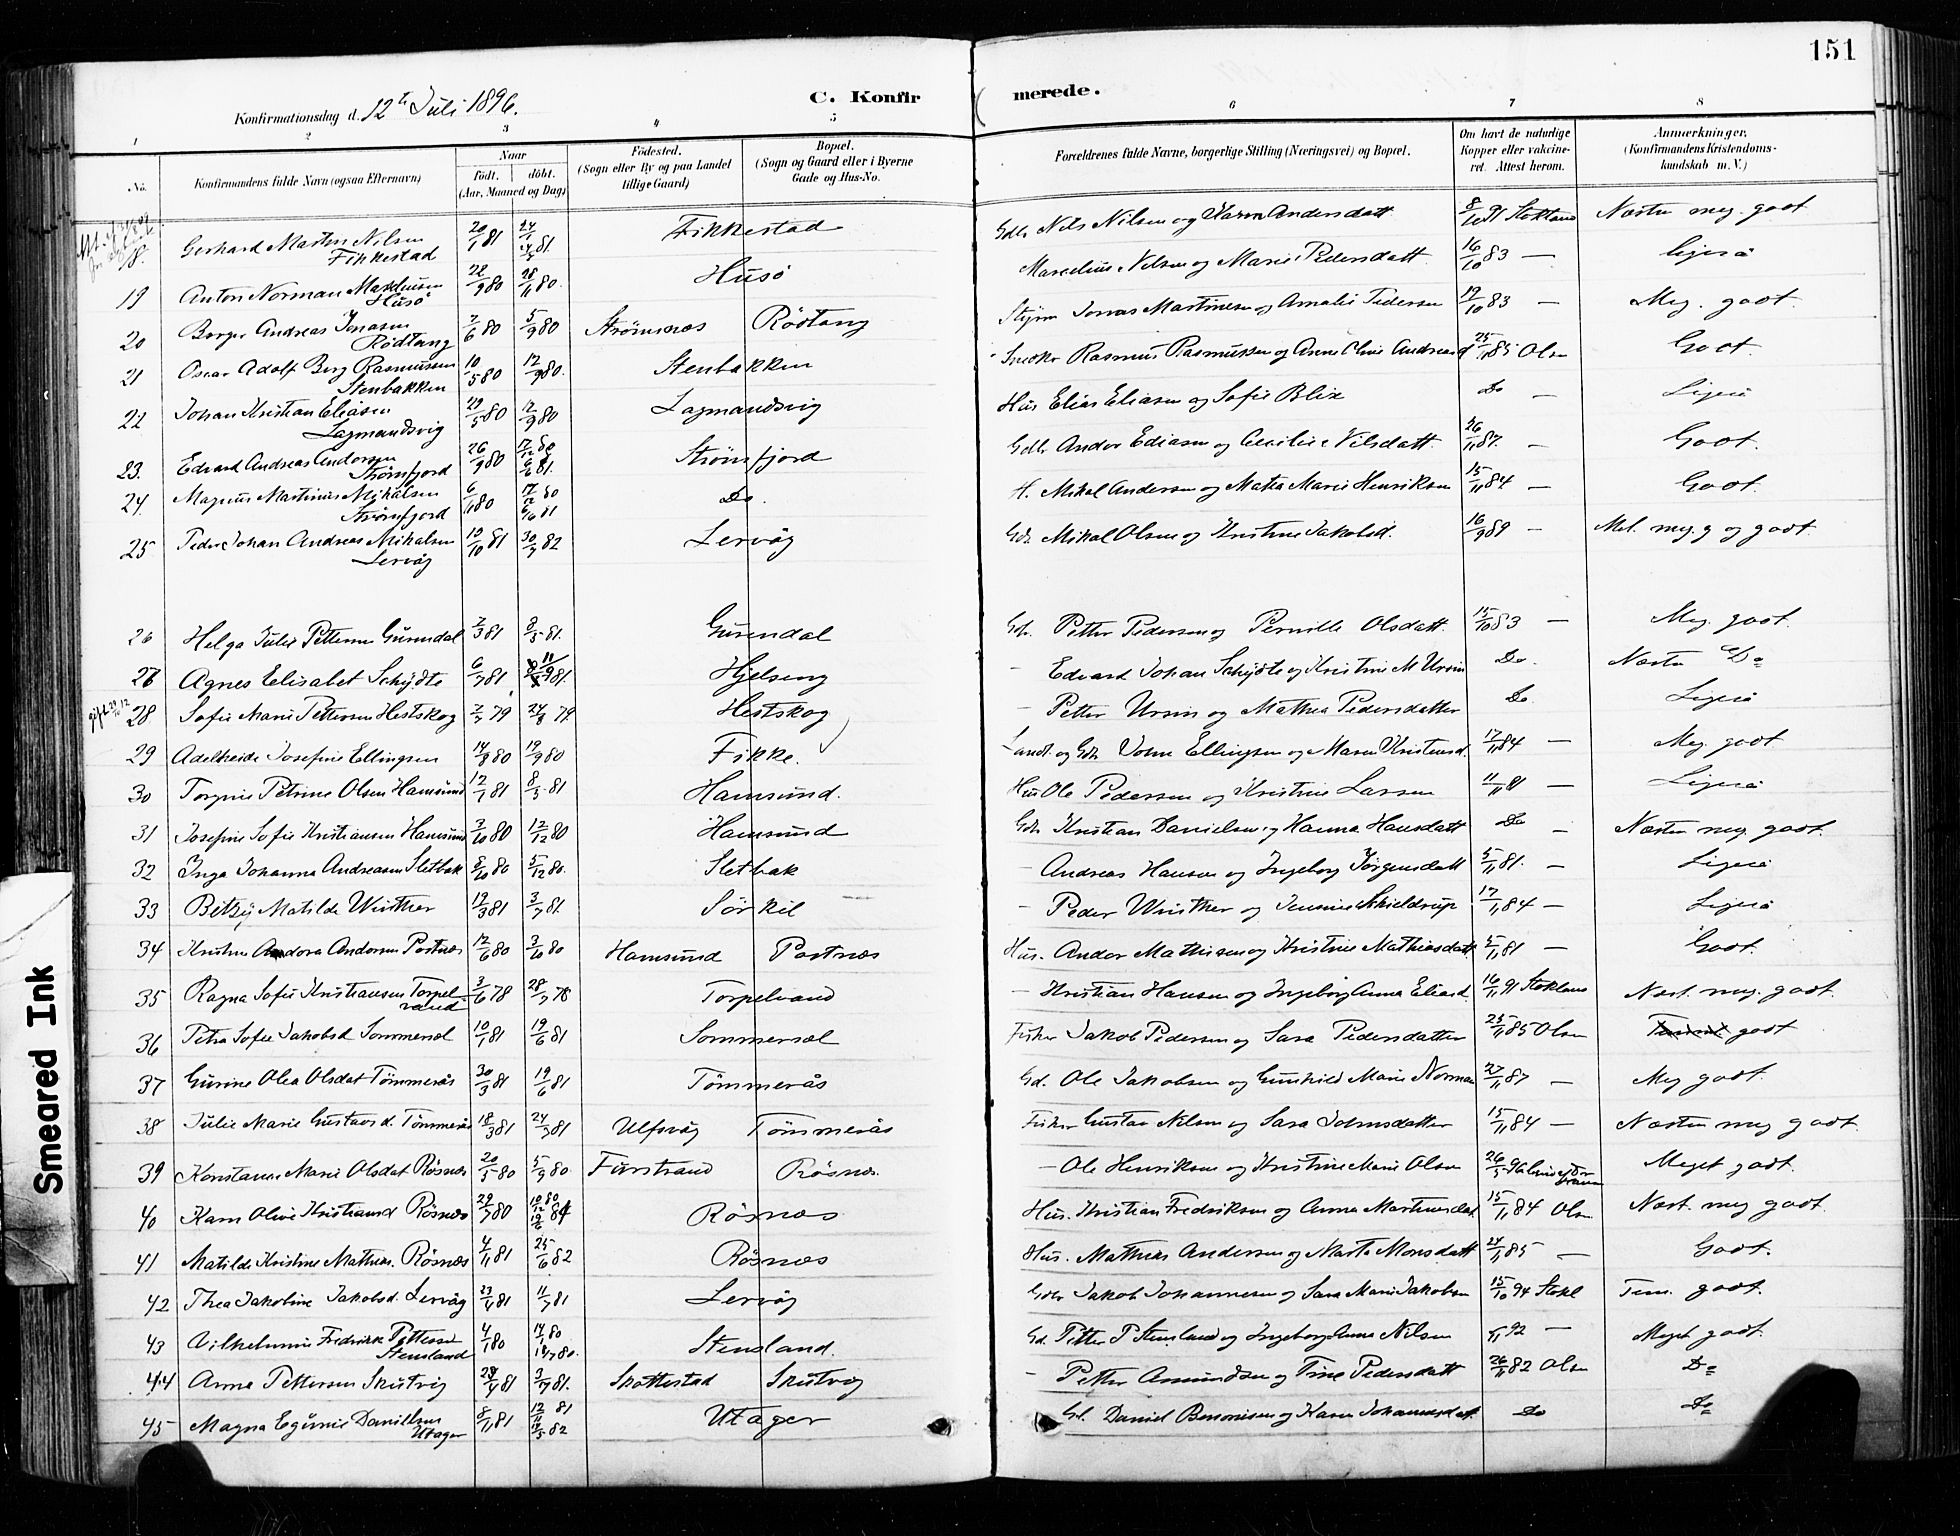 151
Konfirmationsdag d. 12te Juli 1896.
C. Konfirmerede.
1 2 3 4 5 6 7 8
No. Konfirmandens fulde Navn (ogsaa Efternavn) Naar födt. döbt. (Aar, Maaned og Dag) Födested. (Sogn eller By og paa Landet tillige Gaard) Bopæl. (Sogn og Gaard eller i Byerne Gade og Hus-No. Forældrenes fulde Navne, borgerlige Stilling (Næringsvei) og Bopæl. Om havt de naturlige Kopper eller vakcineret. Attest herom. Anmærkninger. (Konfirmandens Kristendomskundskab m. V.)
18. Gerhard Martin Nilsen Fikkestad 20/1 81 Fikkestad Gdbr Nils Nilsen og Karen Andersdatt 8/10 91 Stokland Næsten meg. godt
19 Anton Norman Husö 28/9 80 28/11 80. Husö Marcelius Nilsen og Marie Pedersdatt 16/10 83 — Ligeså
20 Borger Andreas Jonasen Rödtang 7/6 80 5/9 80 Strömnæs Rödtang Styrm Jonas Martinesen og Amalie Pedersen 19/10 83 — Meg. godt
21 Oscar Adolf Berg Rasmussen Stenbakken 10/5 80 12/9 80. Stenbakken Snedker Rasmus Rasmussen og Anne Oline Andreasd 25/11 85 Olsen Godt
22 Johan Kristian Eliasen Lagmandsvig 29/5 80 12/9 80 Lagmandsvig Hus Elias Eliasen og Sofie Blix Do — Ligeså
23. Edvard Andreas Andorsen Strömfjord 26/9 80 17/12 80 6/6 81. Strömfjord Gdbr Andor Ediasen og Cecilie Nilsdatt 26/11 87. — Godt.
24. Magnus Martinus Mikalsen Strömfjord 6/11 80 17/12 80 6/6 81 Do. H. Mikal Andersen og Matea Marie Henriksen 15/11 84 — Godt.
25 Peder Johan Andreas Mikalsen Lervåg 13/10 81 30/7 82 Lervåg Gdb. Mikal Olsen og Kristine Jakobsd. 16/9 89 — Mel. meg. g og godt
26 Helga Julie Pettersen Gurendal 2/3 81 8/5 81. Gurendal Gdb. Petter Pedersen og Pernille Olsdatt. 15/10 83 — Meg. godt.
27 Agnes Elisabet Schjödte 6/7 81 11/9 81. Hjelseng — Edvard Johan Schjödte og Kristine M Ursin Do. Næsten Do
28 Sofie Marie Pettersen Hestskog 2/7 79 24/8 79. Hestskog — Petter Ursin og Mathea Pedersdatter Do Ligeså
29 Adelheide Josefine Ellingsen 14/8 80 19/9 80 Fikke. Landh. og Gdb John Ellingsen og Maren Kristensd. 17/11 84 — Meg. godt
30 Torgine Petrine Olsen Hamsund 12/1 81 8/5 81 Hamsund. Hus Ole Pedersen og Kristine Larsen 11/11 81 — Ligeså
31 Josefine Sofie Kristiansen Hamsund 3/10 80 12/12 80 Hamsund Gdb. Kristian Danielsen og Hanna Hansdatt Do — Næsten meg. godt.
32 Inga Johanna Andreasen Sletbak 8/10 80 5/12 80. Sletbak — Andreas Hansen og Ingeborg Jörgensdatt 5/11 81. — Ligeså
33 Betzy Matilde Winther 12/3 81 3/7 81. Sörkil — Peder Winther og Jennine Schieldrup 17/11 84 — Ligeså
34 Kristine Andora Andorsen Postnæs 12/6 80 3/10 80 Hamsund Postnæs Hus. Andor Mathisen og Kristine Mathiasdatt 5/11 81 — Godt.
35 Ragna Sofie Kristiansen Torpelvand 3/6 78 28/7 78 Torpelvand — Kristian Hansen og Ingeborg Anna Eliasd. 16/11 91 Stokland Næst. meg. godt.
36 Petra Sofie Jakobsd Sommersel 10/1 81 19/6 81 Sommersel Fisker Jakob Pedersen og Sara Pedersdatter 25/11 85 Olsen godt
37 Gurine Olea Olsdat Tömmerås 30/3 81 19/6 81 Tömmerås Gd. Ole Jakobsen og Gunhild Marie Norman 27/11 87 — Meg godt.
38 Julie Marie Gustavsd. Tömmerås 18/3 81 24/7 81 Ulfsvåg Tömmerås Fisker Gustav Nilsen og Sara Johnsdatter 15/11 84 — Næsten meg godt.
39 Konstanse Marie Olsdat Rösnæs 20/5 80 5/9 80 Furstrand Rösnæs. — Ole Henriksen og Kristine Marie Olsen 26/5 96 Meget godt.
40 Karen Olive Kristiansd Rösnæs 29/7 80 10/12 80 19/6 81 Rösnæs Hus. Kristian Fredriksen og Anna Martinusdat. 15/11 84 Olsen Næst. meg godt.
41 Matilde Kristine Mathias. Rösnæs 4/11 81 25/6 82 Rösnæs Hus. Mathias Andersen og Marta Monsdatt 24/11 85 — Godt.
42 Thea Jakobine Jakobsd. Lervåg 23/4 81 11/7 81 Lervåg Gdbr Jakob Johannesen og Sara Marie Jakobsen 15/10 94 Stokl Tem. godt.
43 Vilhelmine Fredrikke Pettersen Stensland 4/1 80 14/1 80 18/7 80. Stensland. Gd. Petter P Stensland og Ingeborg Anna Nilsen 92 — Meget godt.
44 Anna Pettersen Skutvig 28/4 81 3/7 81. Skottestad Skutvig — Petter Amundsen og Trine Pedersdatt 26/11 82 Olsen Do
45 Magna Egine Danielsen Utager 8/11 81 12/11 81 18/5 82 Utager Gd. Daniel Benonisen og Karen Johannesdat. Do Do
Smeared Ink